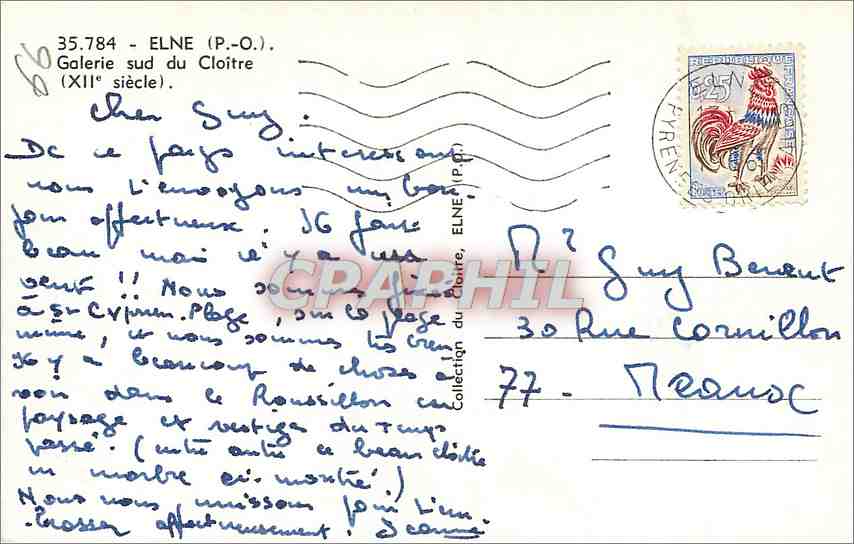 66
35.784 - ELNE (P.-O.).
Galerie sud du Cloître
(XIIe siècle).
Cher Guy.
De ce pays interessant
nous t'envoyons un bon-
jour affectueux. Il fait
beau mais il y a un
vent !! Nous sommes
à St Cyprien-Plage, sur la plage
même, et nous sommes très bien
Il y a beaucoup de choses à
voir dans le Roussillon en
paysage et vestiges du temps
passé. (entre autre ce beau cloître
en marbre ci-montré)
Nous nous unissons pour t'em-
-brasser affectueusement. Jeanne
Collection du Cloître, ELNE (P.O.)
CPARPHIL
0,25
ELN
PYRENE
Mr Guy Benent
30 Rue Cornillon
77 - Meaux